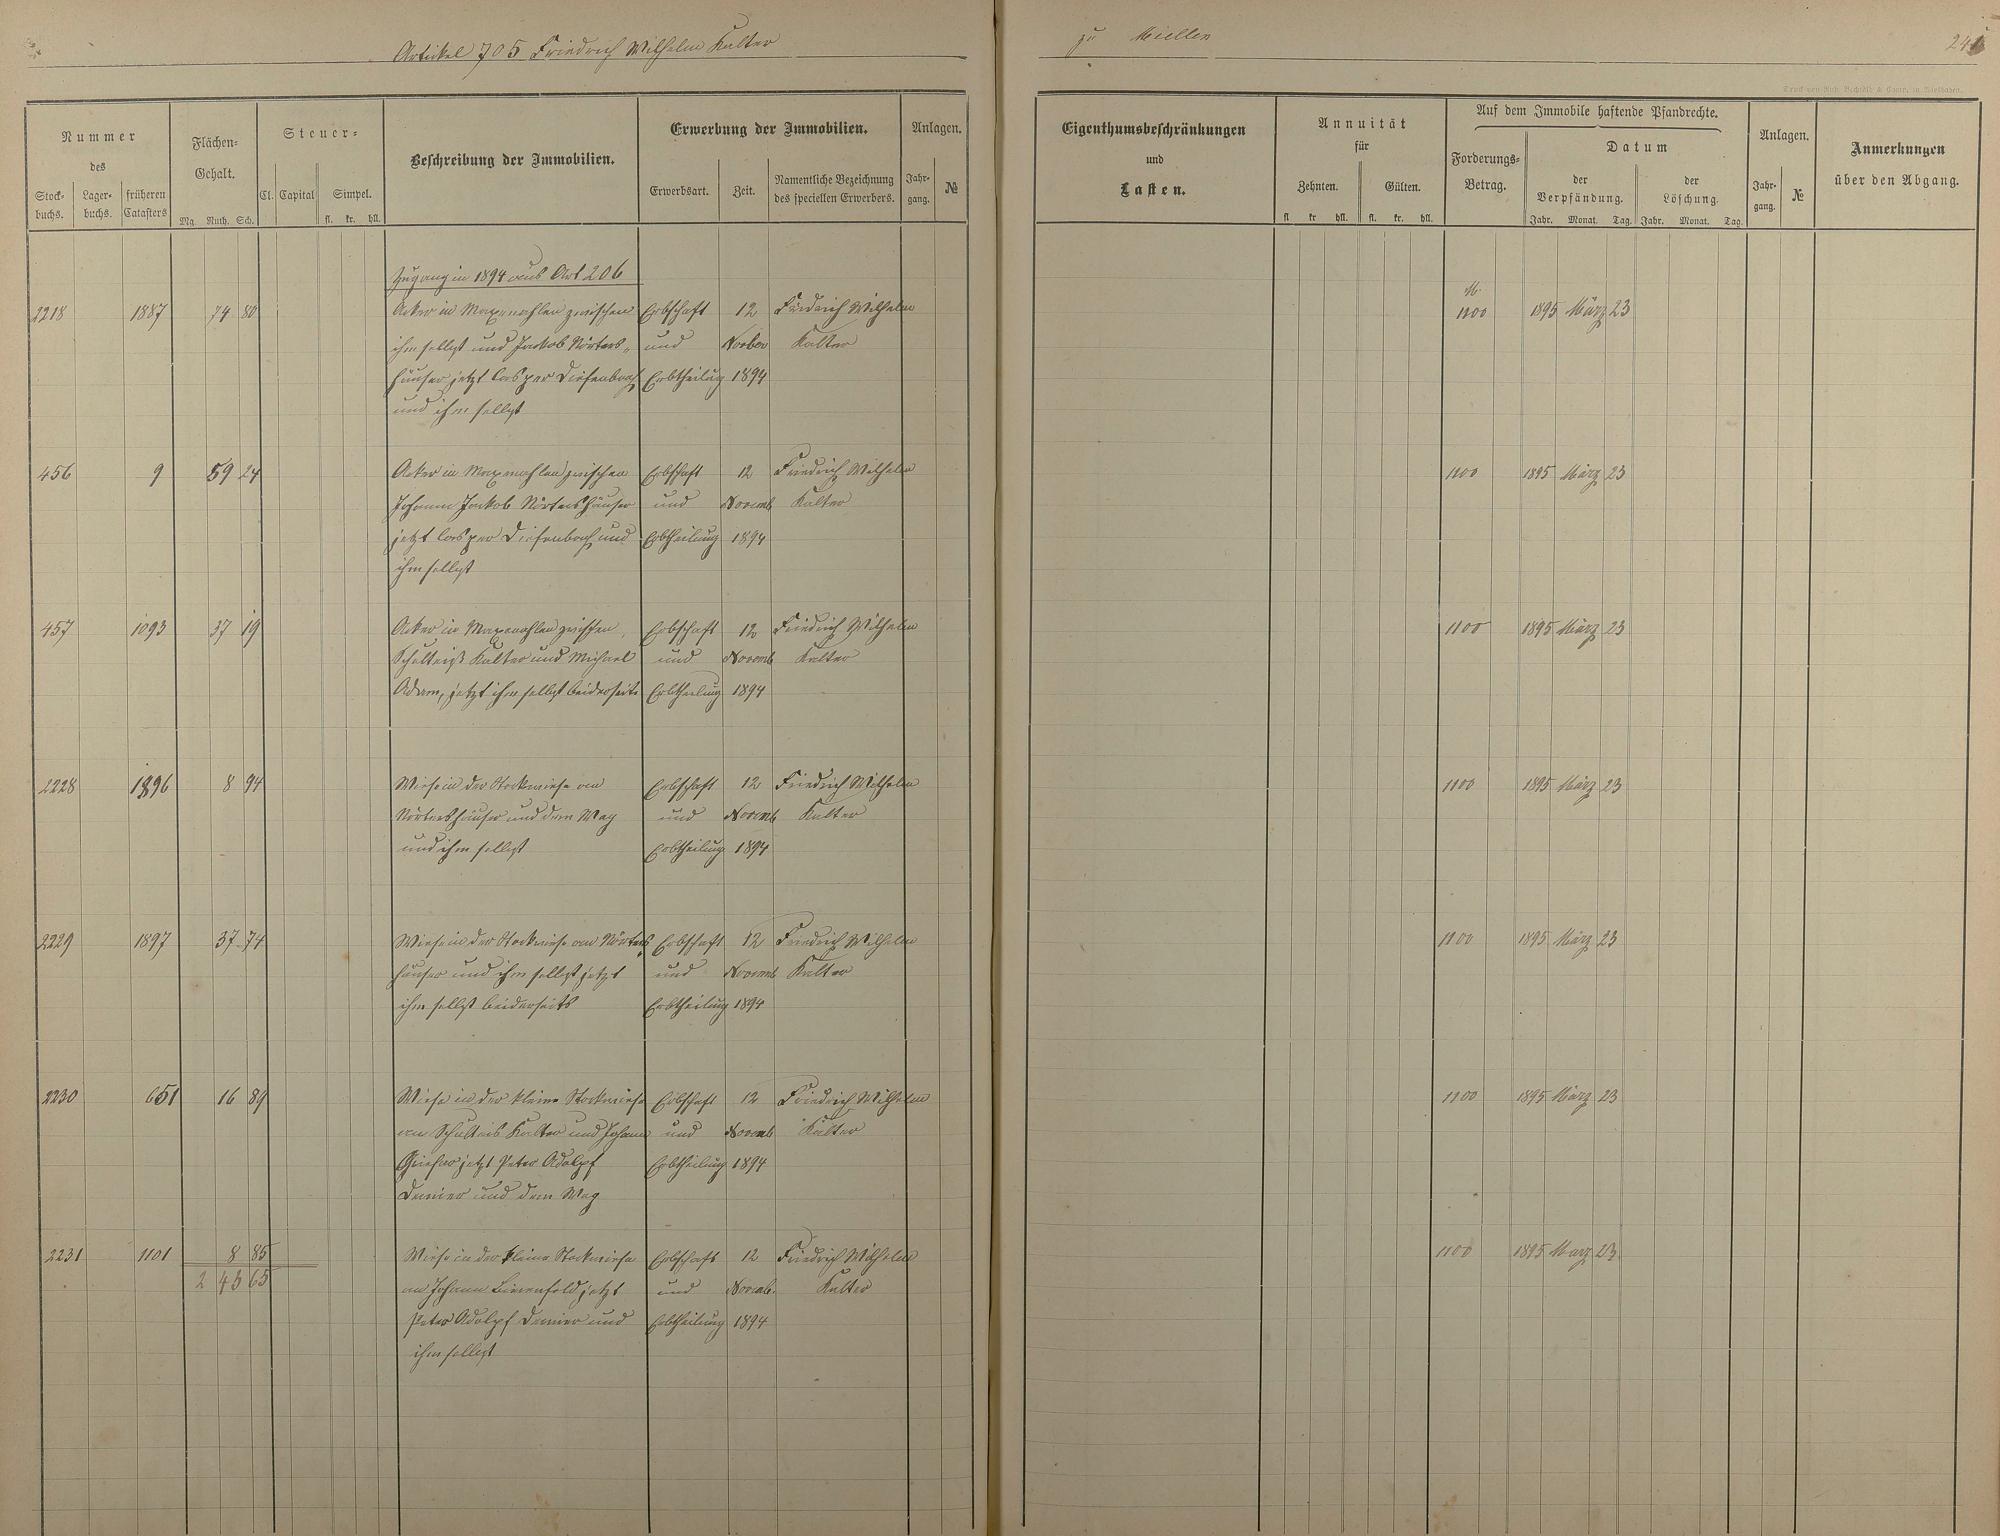 Artikel 705 Friedrich Wilhelm Kalter
zu Miellen
Druck von Rud. Bechtold & Comp. in Wiesbaden.
Nummer
des
Stock-
buchs.
Lager-
buchs.
früheren
Catasters
Flächen-
Gehalt.
Mg. Ruth. Sch.
Steuer-
Cl. Capital Simpel.
fl. kr. hll.
Beschreibung der Immobilien.
Erwerbung der Immobilien.
Erwerbsart. Zeit.
Namentliche Bezeichnung
des speciellen Erwerbers.
Anlagen.
Jahr-
gang.
№
Eigenthumsbeschränkungen
und
Lasten.
Annuität
für
Zehnten. Gülten.
fl kr hll. fl. kr. hll.
Auf dem Immobile haftende Pfandrechte.
Forderungs-
Betrag.
Datum
der
Verpfändung.
Jahr. Monat. Tag.
der
Löschung.
Jahr. Monat. Tag.
Anlagen.
Jahr-
gang.
№
Anmerkungen
über den Abgang.
Zugang in 1894 aus Art 206
M.
2218 1887 74 80 Acker in Maxenahlen zwischen Erbschaft 12 Friedrich Wilhelm 1100 1895 März 23
ihm selbst und Jackob Nörters- und Novber Kalter
häuser jetzt Casper Diefenbach Erbtheilug 1894
und ihm selbst
456 9 59 24 Acker in Maxenahlen zwischen Erbschaft 12 Friedrich Wilhelm 1100 1895 März 23
Johann Jackob Nörtershäuser und Novemb Kalter
jetzt Casper Diefenbach und Erbtheilung 1894
ihm selbst
457 1093 37 19 Acker in Maxenahlen zwischen Erbschaft 12 Friedrich Wilhelm 1100 1895 März 23
Schulteiß Kalter und Michael und Novemb Kalter
Adam, jetzt ihm selbst beiderseits Erbtheilung 1894
2228 1896 8 94 Wiese in der Stockwiese an Erbschaft 12 Friedrich Wilhelm 1100 1895 März 23
Nörtershäuser und dem Weg und Novemb Kalter
und ihm selbst Erbtheilung 1894
2229 1897 37 74 Wiese in der Stockwiese an Nörters Erbschaft 12 Friedrich Wilhelm 1100 1895 März 23
häuser und ihm selbst jetzt und Novemb Kalter
ihm selbst beiderseits Erbtheilung 1894
2230 651 16 89 Wiese in der kleine Stockwiese Erbschaft 12 Friedrich Wilhelm 1100 1895 März 23
an Schulteis Kalter und Johann und Novemb Kalter
jetzt Peter Adolpf Erbtheilung 1894
Demier und dem Weg
2231 1101 8 85 Wiese in der kleine Stockwiese Erbschaft 12 Friedrich Wilhelm 1100 1895 März 23
2 43 65 an Johann jetzt und Novemb. Kalter
Peter Adolpf Demier und Erbtheilung 1894
ihm selbst